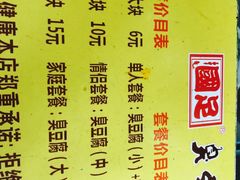 國足
臭
价目表 套餐价目表
块 6元 单人套餐：臭豆腐（小）+
块 10元 情侣套餐：臭豆腐（中）
块 15元 家庭套餐：臭豆腐（大）
健康本店郑重承诺：拒绝